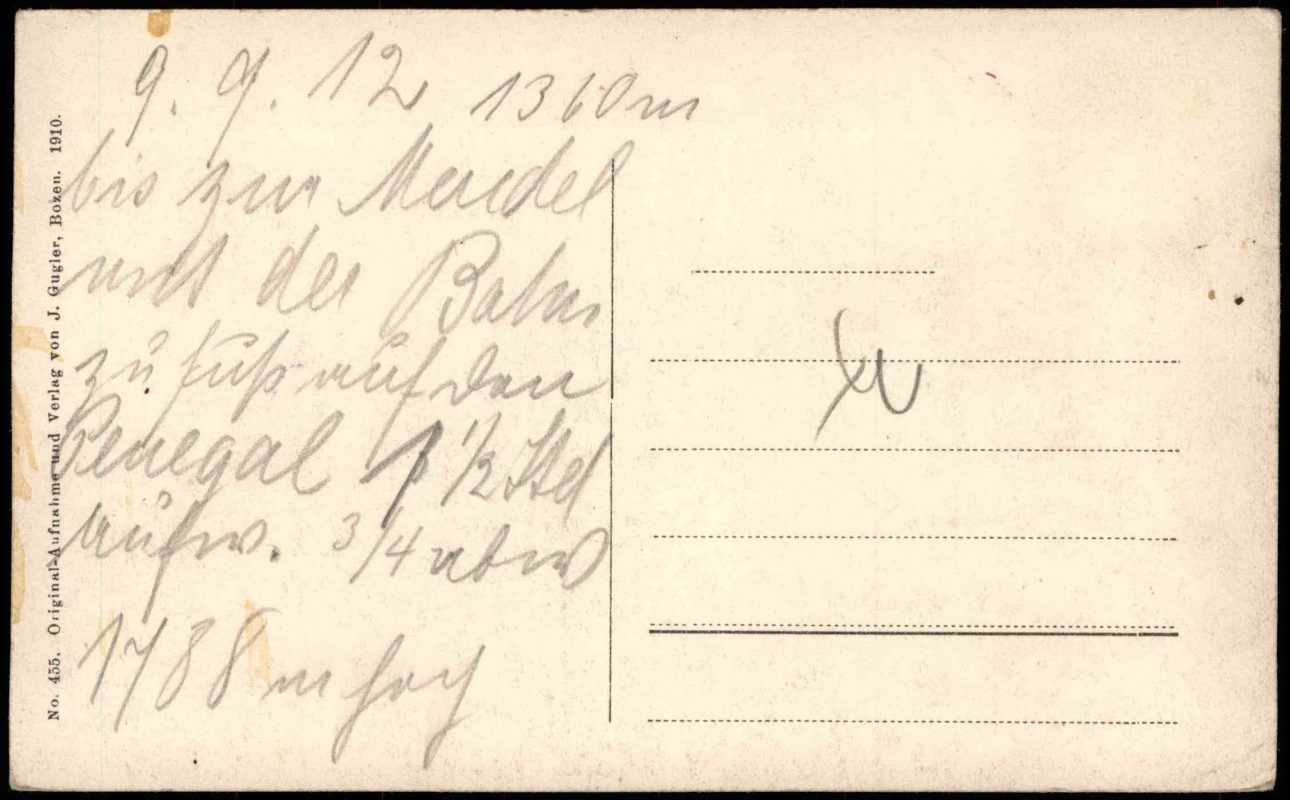 No. 455. Original-Aufnahme und Verlag von J. Gugler, Bozen. 1910.
9. 9. 12 1360m
bis zur Mendel
mit der Bahn
zu fuß auf den
Penegal 1 1/2 Std
aufw. 3/4 abw
1788 m hoch